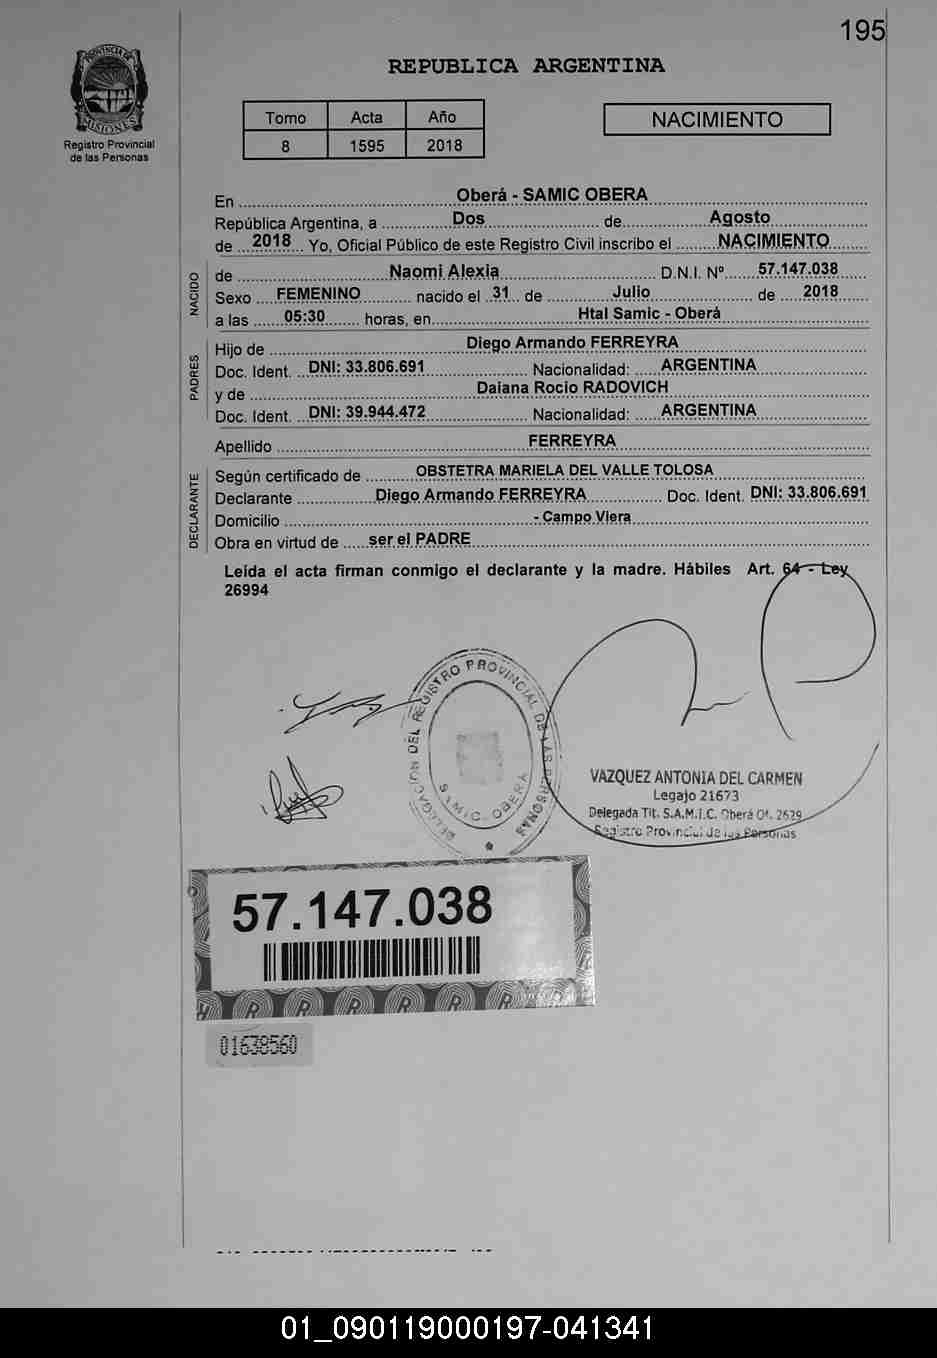 195
PROVINCIA DE
MISIONES
Registro Provincial
de las Personas
REPUBLICA ARGENTINA
Tomo Acta Año
8 1595 2018
NACIMIENTO
En Oberá - SAMIC OBERA
República Argentina, a Dos de Agosto
de 2018 Yo, Oficial Público de este Registro Civil inscribo el NACIMIENTO
NACIDO
de Naomi Alexia D.N.I. Nº 57.147.038
Sexo FEMENINO nacido el 31 de Julio de 2018
a las 05:30 horas, en Htal Samic - Oberá
PADRES
Hijo de Diego Armando FERREYRA
Doc. Ident. DNI: 33.806.691 Nacionalidad: ARGENTINA
y de Daiana Rocio RADOVICH
Doc. Ident. DNI: 39.944.472 Nacionalidad: ARGENTINA
Apellido FERREYRA
DECLARANTE
Según certificado de OBSTETRA MARIELA DEL VALLE TOLOSA
Declarante Diego Armando FERREYRA Doc. Ident. DNI: 33.806.691
Domicilio - Campo Viera
Obra en virtud de ser el PADRE
Leída el acta firman conmigo el declarante y la madre. Hábiles Art. 64 - Ley
26994
DELEGACION DEL REGISTRO PROVINCIAL DE LAS PERSONAS
S.A.M.I.C. OBERA
VAZQUEZ ANTONIA DEL CARMEN
Legajo 21673
Delegada Tit. S.A.M.I.C. Oberá Of. 2629
Registro Provincial de las Personas
57.147.038
01638560
01_090119000197-041341